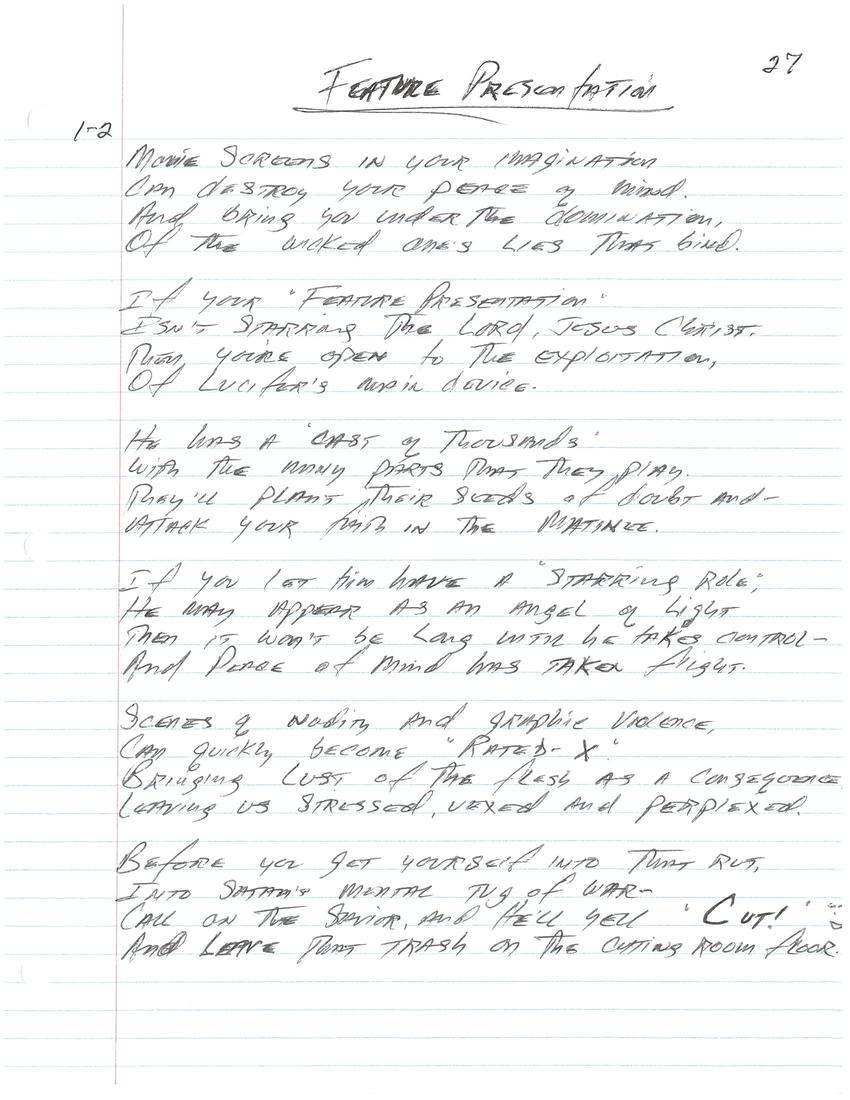 27
Feature Presentation
1-2
Movie Screens in your imagination
Can destroy your peace of mind.
And bring you under the domination,
Of the wicked one's lies that bind.
If your "Feature Presentation"
Isn't starring the Lord, Jesus Christ.
Then you're open to the exploitation,
Of Lucifer's main device.
He has a "cast of thousands"
With the many parts that they play.
They'll plant their seeds of doubt and-
Attack your faith in the Matinee.
If you let him have a "Starring Role",
He may appear as an Angel of Light
Then it won't be long until he takes control-
And Peace of Mind has taken flight.
Scenes of nudity and graphic violence,
Can quickly become "Rated-X."
Bringing lust of the flesh as a consequence
Leaving us stressed, vexed and perplexed.
Before you get yourself into that rut,
Into Satan's mental tug of war-
Call on the Savior, and He'll yell "Cut!"
And leave that trash on the cutting room floor.